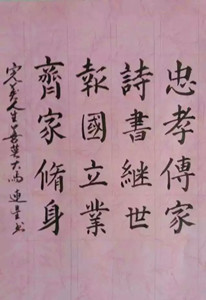 忠孝傳家
詩書継世
報國立業
齊家脩身